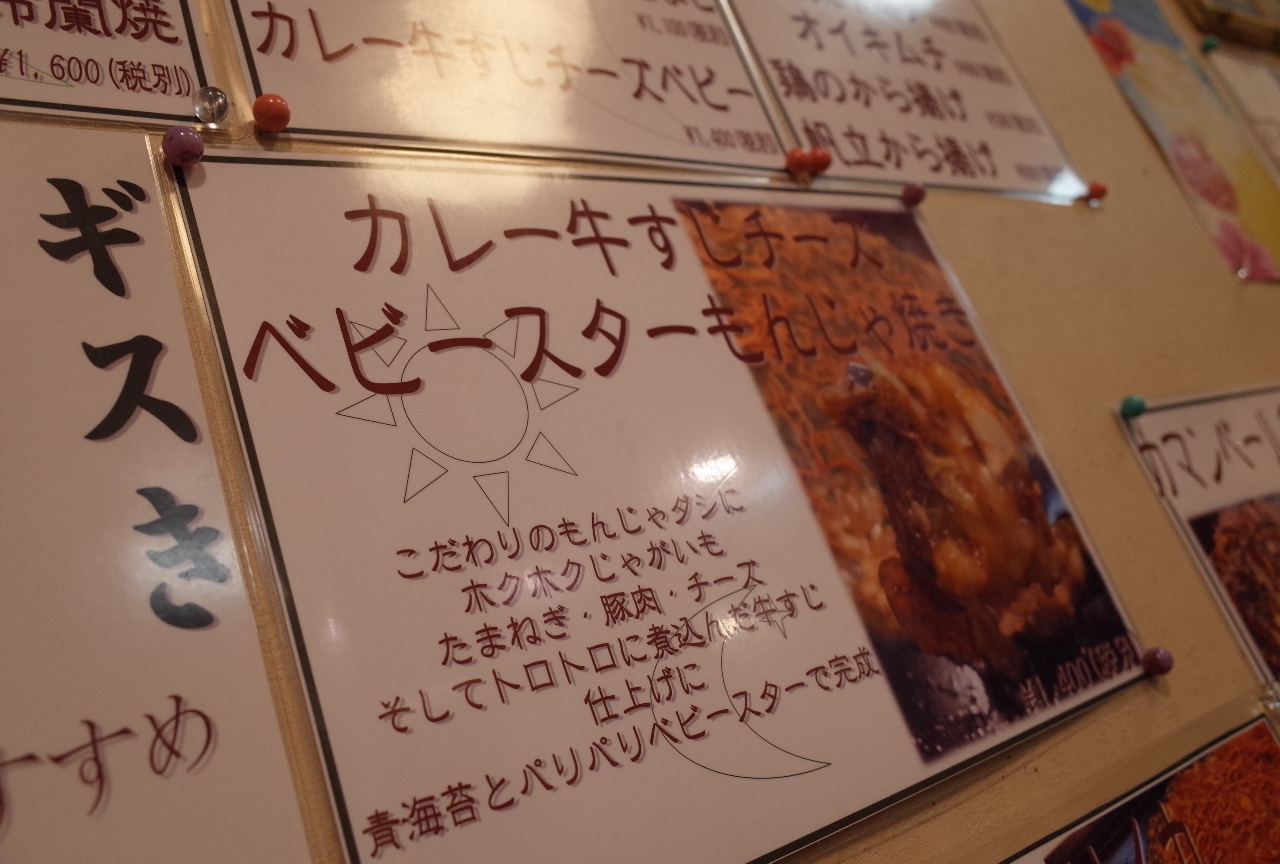 蘭焼
¥1,600(税別)
カレー牛すじチーズベビー
¥1,400(税別)
オイキムチ
鶏のから揚げ
帆立から揚げ
ギスき
すすめ
カレー牛すじチーズ
ベビースターもんじゃ焼き
こだわりのもんじゃダシに
ホクホクじゃがいも
たまねぎ・豚肉・チーズ
そしてトロトロに煮込んだ牛すじ
仕上げに
青海苔とパリパリベビースターで完成
¥1,400(税別)
カマンベール